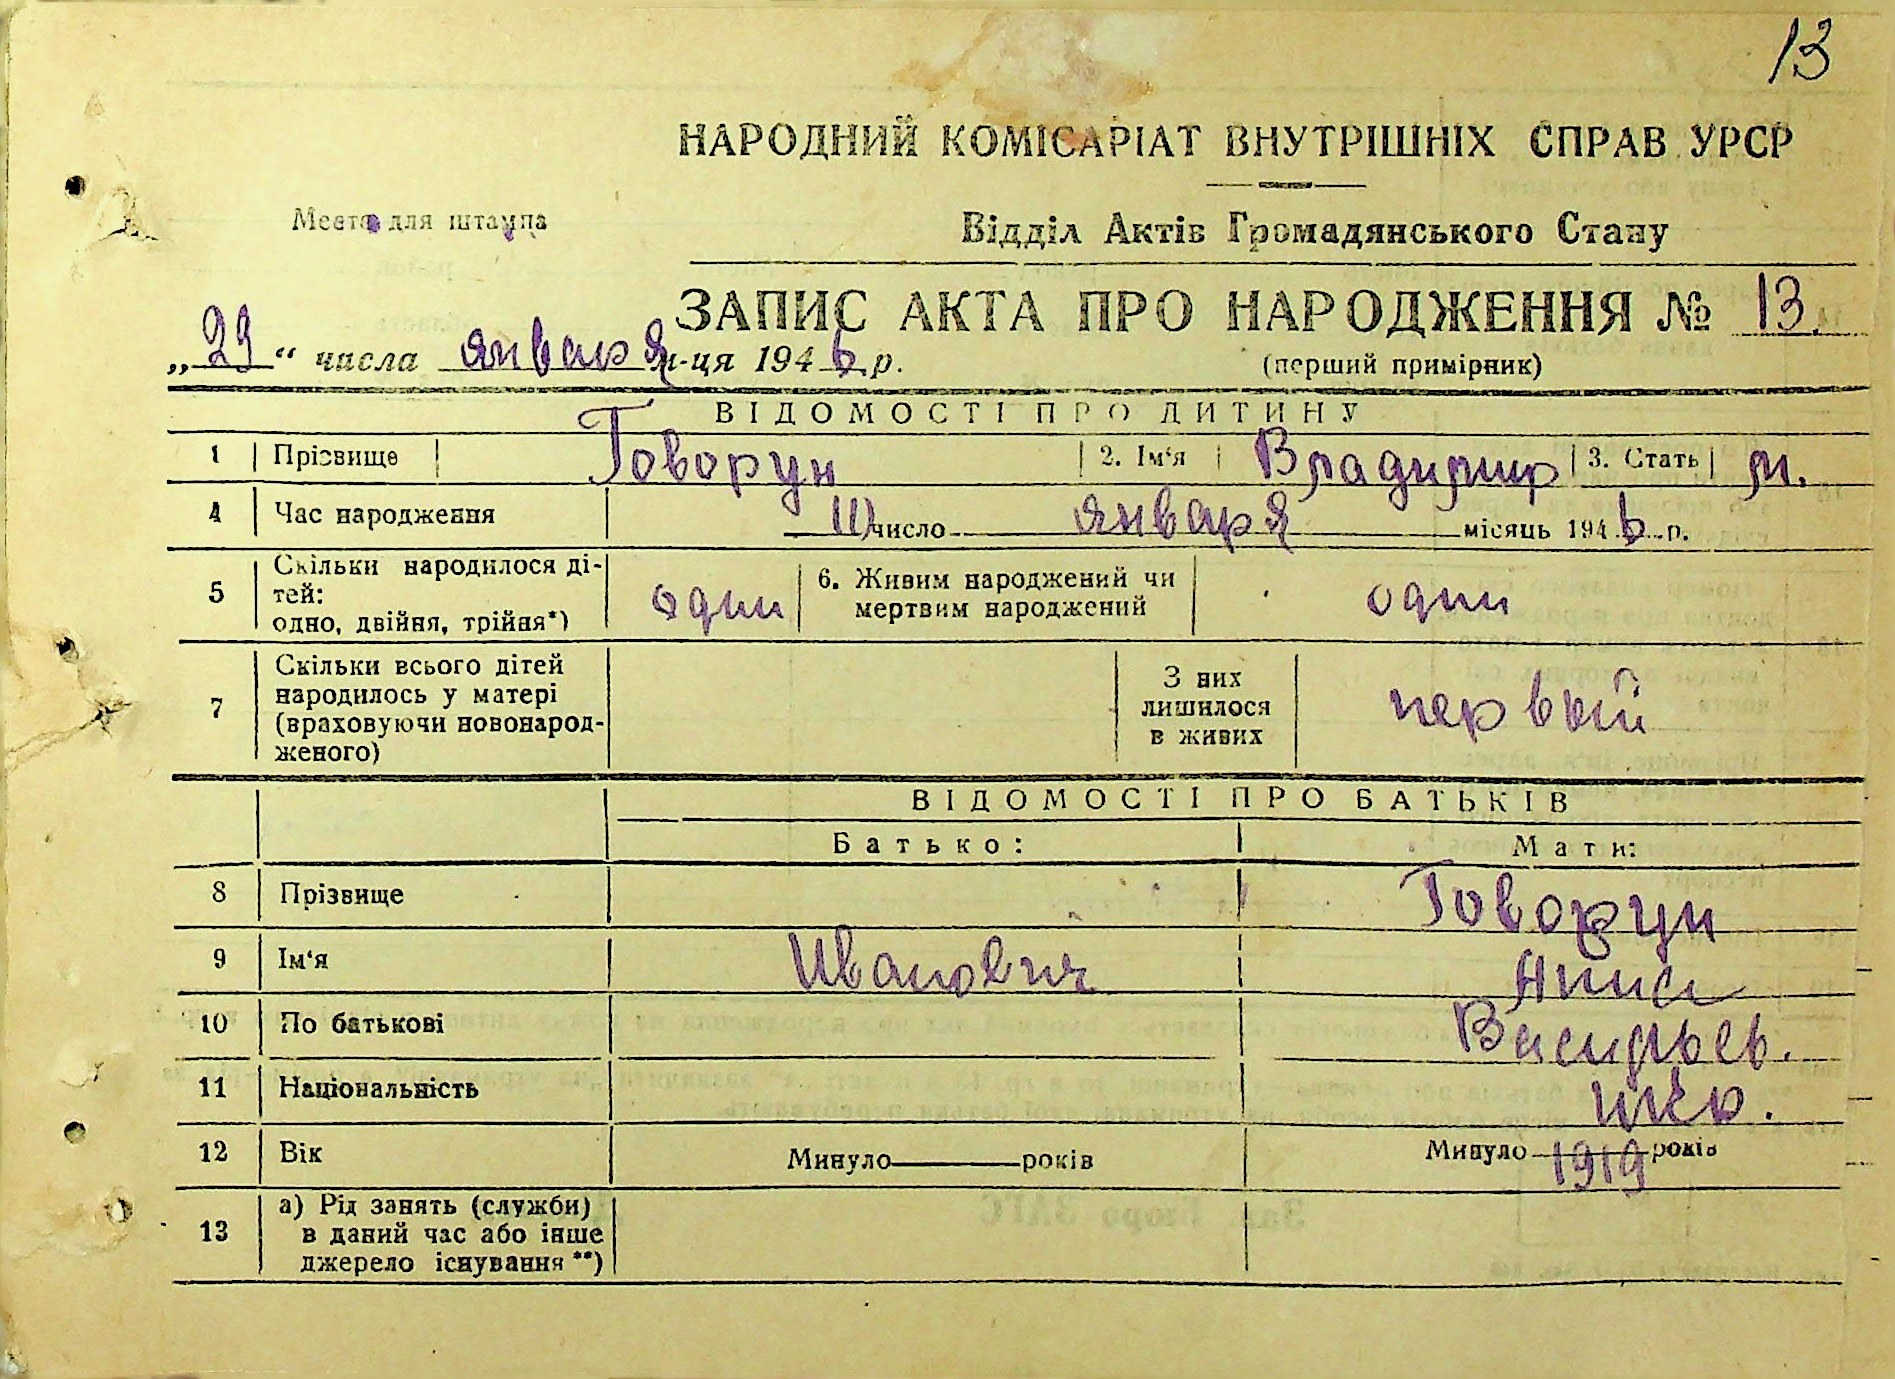 13
НАРОДНИЙ КОМІСАРІАТ ВНУТРІШНІХ СПРАВ УРСР
Место для штампа
Відділ Актів Громадянського Стану
ЗАПИС АКТА ПРО НАРОДЖЕННЯ № 13.
„29“ числа января м-ця 1946 р.
(перший примірник)
ВІДОМОСТІ ПРО ДИТИНУ
1 Прізвище Говорун 2. Ім‘я Владимир 3. Стать м.
4 Час народження число января місяць 1946 р.
5 Скільки народилося ді-
тей:
одно, двійня, трійня*) один 6. Живим народжений чи
мертвим народжений один
7 Скільки всього дітей
народилось у матері
(враховуючи новонарод-
женого) З них
лишилося
в живих первый
ВІДОМОСТІ ПРО БАТЬКІВ
Батько: Мати:
8 Прізвище Говорун
9 Ім‘я Иванович
10 По батькові Васильев.
11 Національність
12 Вік Минуло років Минуло 1919 років
13 а) Рід занять (служби)
в даний час або інше
джерело існування **)